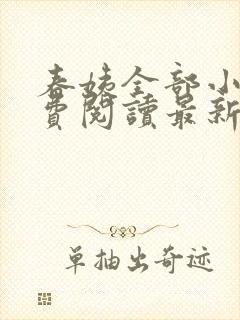 春姨全部小
费閱讀最新
单抽出奇迹